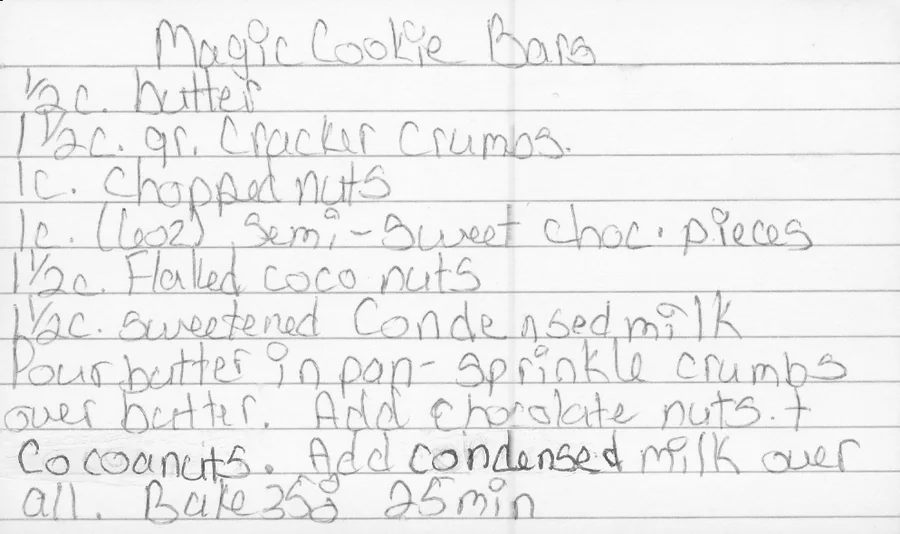 Magic Cookie Bars
1/2c. butter
1 1/2c. gr. Cracker Crumbs.
1c. Chopped nuts
1c. (6oz) semi-sweet choc. pieces
1 1/2c. Flaked coco nuts
1 1/2c. sweetened Condensed milk
Pour butter in pan- sprinkle crumbs
over butter. Add chocolate nuts. +
Cocoanuts. Add condensed milk over
all. Bake 350 25min